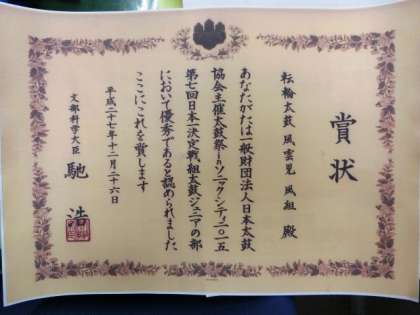 賞状
転輪太鼓 風雲児 風組 殿
あなたがたは一般財団法人日本太鼓
協会主催太鼓祭inソニックシティ二〇一五
第七回日本一決定戦組太鼓ジュニアの部
において優秀であると認められました
ここにこれを賞します
平成二十七年十二月二十六日
文部科学大臣 馳 浩